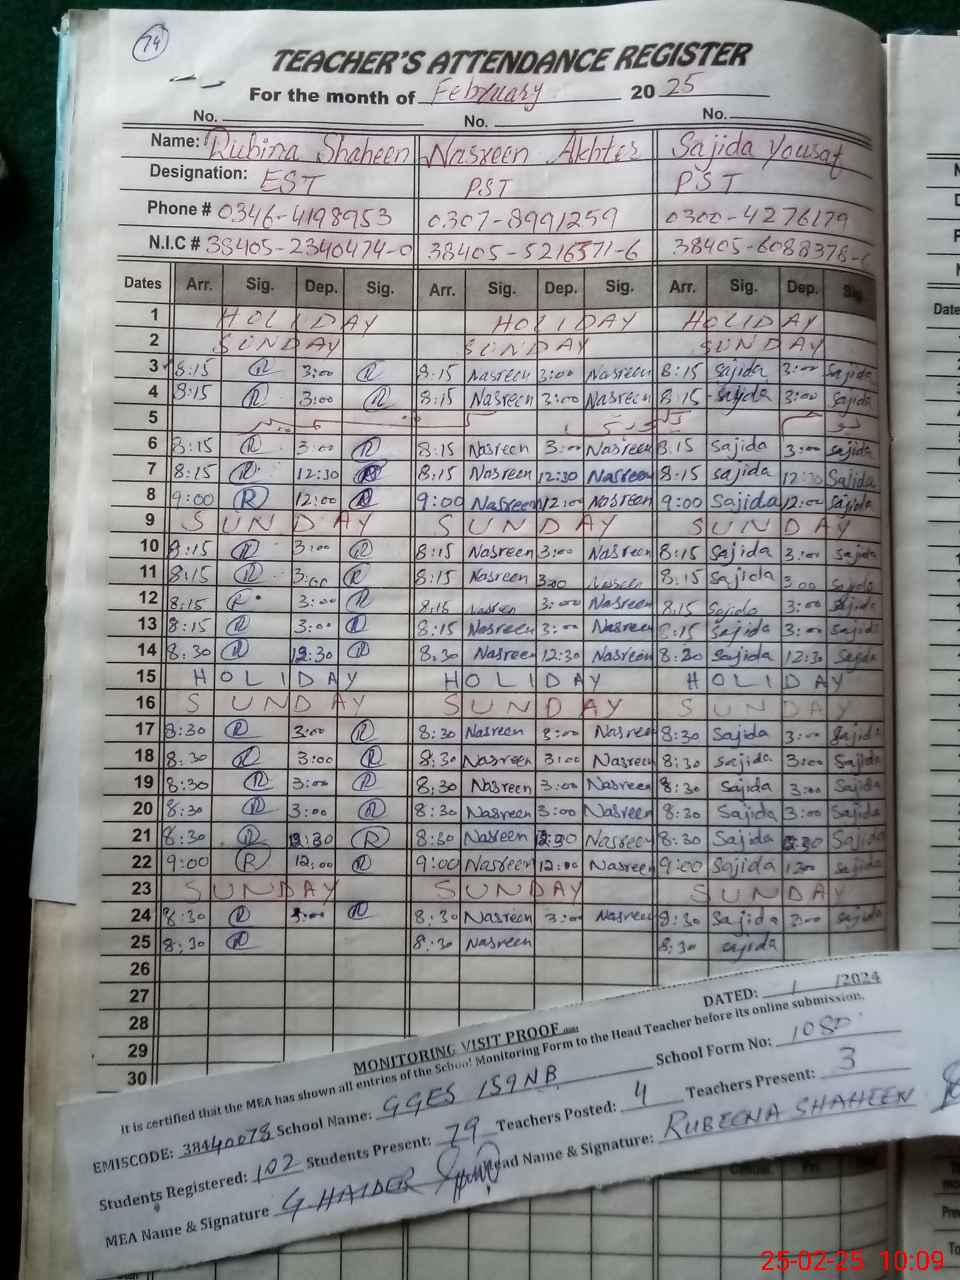 74
TEACHER'S ATTENDANCE REGISTER
For the month of February 20 25
No. No. No.
Name: Rubina Shaheen Nasreen Akhter Sajida Yousaf
Designation: EST PST PST
Phone # 0346-4198953 0307-8991259 0300-4276179
N.I.C # 38405-2340474-0 38405-5216371-6 38405-6088378-
Dates Arr. Sig. Dep. Sig. Arr. Sig. Dep. Sig. Arr. Sig. Dep. Sig.
1 HOLIDAY HOLIDAY HOLIDAY
2 SUNDAY SUNDAY SUNDAY
3 8:15 R 3:00 R 8:15 Nasreen 3:00 Nasreen 8:15 Sajida 3:00 Sajida
4 8:15 R 3:00 R 8:15 Nasreen 3:00 Nasreen 8:15 Sajida 3:00 Sajida
5
6 8:15 R 3:00 R 8:15 Nasreen 3:00 Nasreen 8:15 Sajida 3:00 Sajida
7 8:15 R 12:30 R 8:15 Nasreen 12:30 Nasreen 8:15 Sajida 12:30 Sajida
8 9:00 R 12:00 R 9:00 Nasreen 12:00 Nasreen 9:00 Sajida 12:00 Sajida
9 SUNDAY SUNDAY SUNDAY
10 8:15 R 3:00 R 8:15 Nasreen 3:00 Nasreen 8:15 Sajida 3:00 Sajida
11 8:15 R 3:00 R 8:15 Nasreen 3:00 Nasreen 8:15 Sajida 3:00 Sajida
12 8:15 R 3:00 R 8:15 Nasreen 3:00 Nasreen 8:15 Sajida 3:00 Sajida
13 8:15 R 3:00 R 8:15 Nasreen 3:00 Nasreen 8:15 Sajida 3:00 Sajida
14 8:30 R 12:30 R 8:30 Nasreen 12:30 Nasreen 8:30 Sajida 12:30 Sajida
15 HOLIDAY HOLIDAY HOLIDAY
16 SUNDAY SUNDAY SUNDAY
17 8:30 R 3:00 R 8:30 Nasreen 3:00 Nasreen 8:30 Sajida 3:00 Sajida
18 8:30 R 3:00 R 8:30 Nasreen 3:00 Nasreen 8:30 Sajida 3:00 Sajida
19 8:30 R 3:00 R 8:30 Nasreen 3:00 Nasreen 8:30 Sajida 3:00 Sajida
20 8:30 R 3:00 R 8:30 Nasreen 3:00 Nasreen 8:30 Sajida 3:00 Sajida
21 8:30 R 12:30 R 8:30 Nasreen 12:30 Nasreen 8:30 Sajida 12:30 Sajida
22 9:00 R 12:00 R 9:00 Nasreen 12:00 Nasreen 9:00 Sajida Sajida
23 SUNDAY SUNDAY SUNDAY
24 8:30 R 3:00 R 8:30 Nasreen 3:00 Nasreen 8:30 Sajida 3:00 Sajida
25 8:30 R 8:30 Nasreen 8:30 Sajida
26
27
28
29
30
MONITORING VISIT PROOF DATED: / /2024
It is certified that the MEA has shown all entries of the School Monitoring Form to the Head Teacher before its online submission.
EMISCODE: 38440078 School Name: GGES 159NB School Form No: 1080
Students Registered: 102 Students Present: 79 Teachers Posted: 4 Teachers Present: 3
MEA Name & Signature G.HAIDER Head Name & Signature: RUBEENA SHAHEEN
25-02-25 10:09